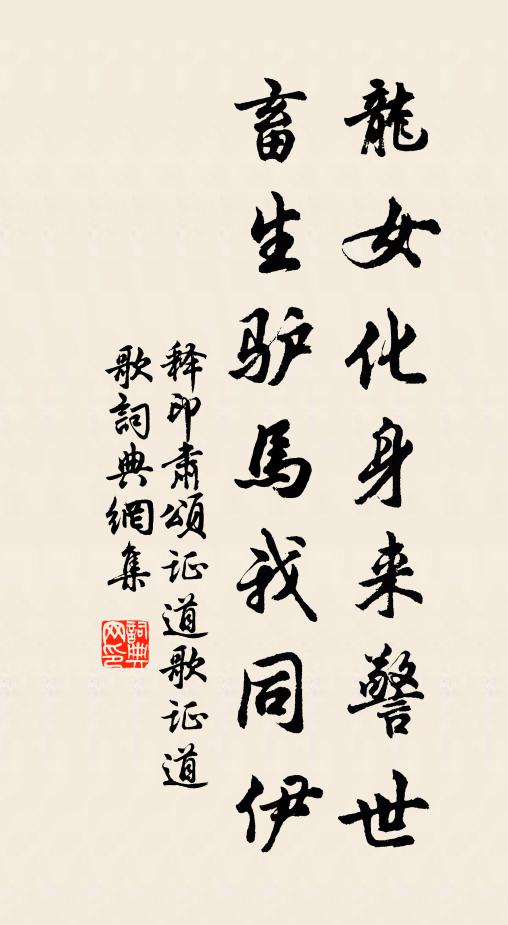 龍女化身来警世
畜生驴馬我同伊
释印肃頌证道歌证道
歌詞典網集
詞典网印